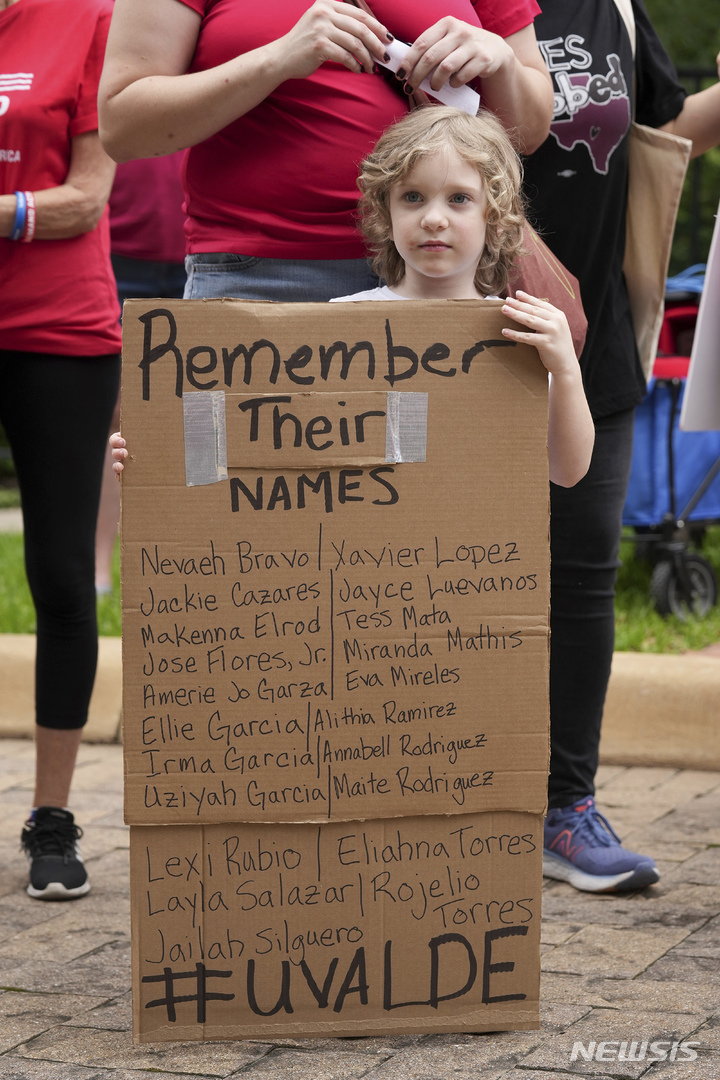 Remember
Their
NAMES
Nevaeh Bravo | Xavier Lopez
Jackie Cazares | Jayce Luevanos
Makenna Elrod | Tess Mata
Jose Flores, Jr. | Miranda Mathis
Amerie Jo Garza | Eva Mireles
Ellie Garcia | Alithia Ramirez
Irma Garcia | Annabell Rodriguez
Uziyah Garcia | Maite Rodriguez
Lexi Rubio | Eliahna Torres
Layla Salazar | Rojelio
Torres
Jailah Silguero
#UVALDE
NEWSIS